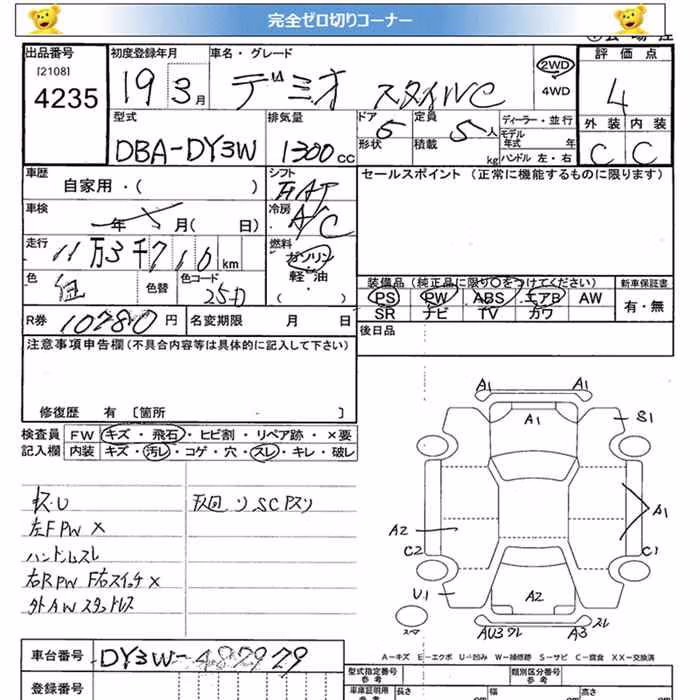 完全ゼロ切りコーナー
出品番号 初度登録年月 車名・グレード 評価点
[2108]
4235
19 3月 デミオ スタイルC 2WD 4WD 4
型式 排気量 ドア 定員 ディーラー・並行 外装 内装
DBA-DY3W 1300cc 5 5人 モデル年式 年 C C
形状 積載 kg ハンドル 左・右
車歴 シフト セールスポイント(正常に機能するものに限ります)
自家用・( ) FAT
車検 冷房
年 月( 日) A/C
走行 燃料
11万3千716km ガソリン
軽・油
( ・ )
色 色替 色コード
25D
装備品(純正品に限り○をつけてください) 新車保証書
PS PW ABS エアB AW 有・無
SR ナビ TV カワ
R券 10780円 名変期限 月 日 後日品
注意事項申告欄(不具合内容等は具体的に記入して下さい)
修復歴 有 [箇所 ]
検査員 FW キズ・飛石・ヒビ割・リペア跡・×要
記入欄 内装 キズ・汚レ・コゲ・穴・スレ・キレ・破レ
キズ・U
左FPW ×
ハンドルスレ
右RPW F右スイッチ×
外AWスタッドレス
A1 A1
A1 S1
A1
A2
C2 C1
U1 A2
スペア AU3 ワレ A3 スレ
A-キズ E-エクボ U-凹み W-補修跡 S-サビ C-腐食 XX-交換済
車台番号 DY3W-487979
登録番号
型式指定番号 参考 類別区分番号 参考
車庫証明用 参考 長さ cm 幅 cm 高さ cm